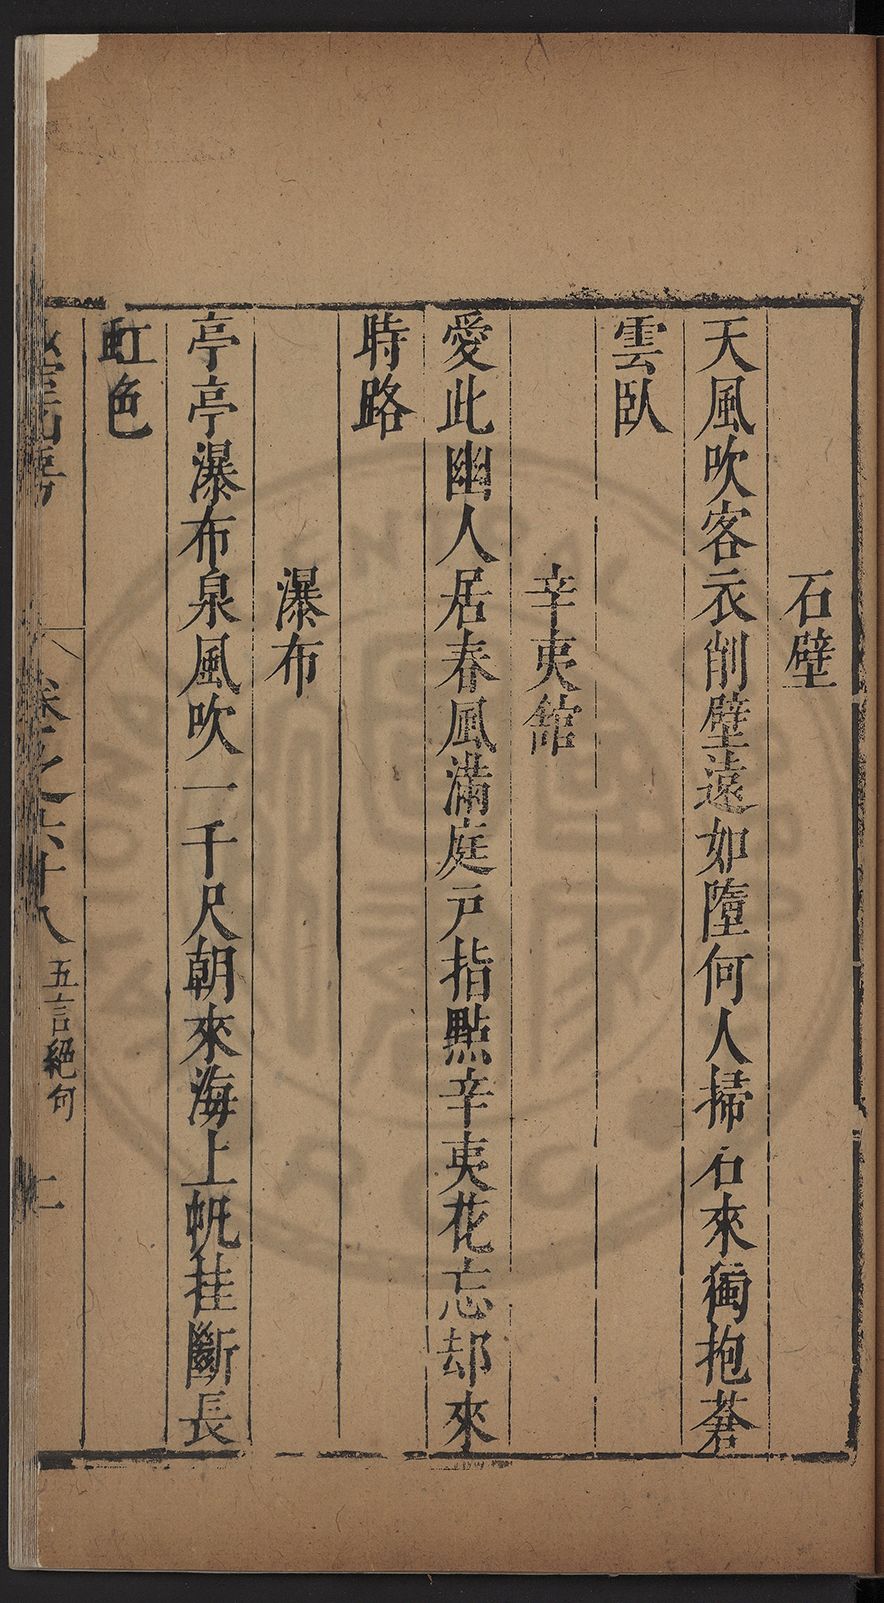 石壁
天風吹客衣削壁遠如墮何人掃石來獨抱蒼
雲臥
辛夷館
愛此幽人居春風滿庭戸指點辛夷花忘却來
時路
瀑布
亭亭瀑布泉風吹一千尺朝來海上帆挂斷長
虹色
卷之六十八 五言絕句 二